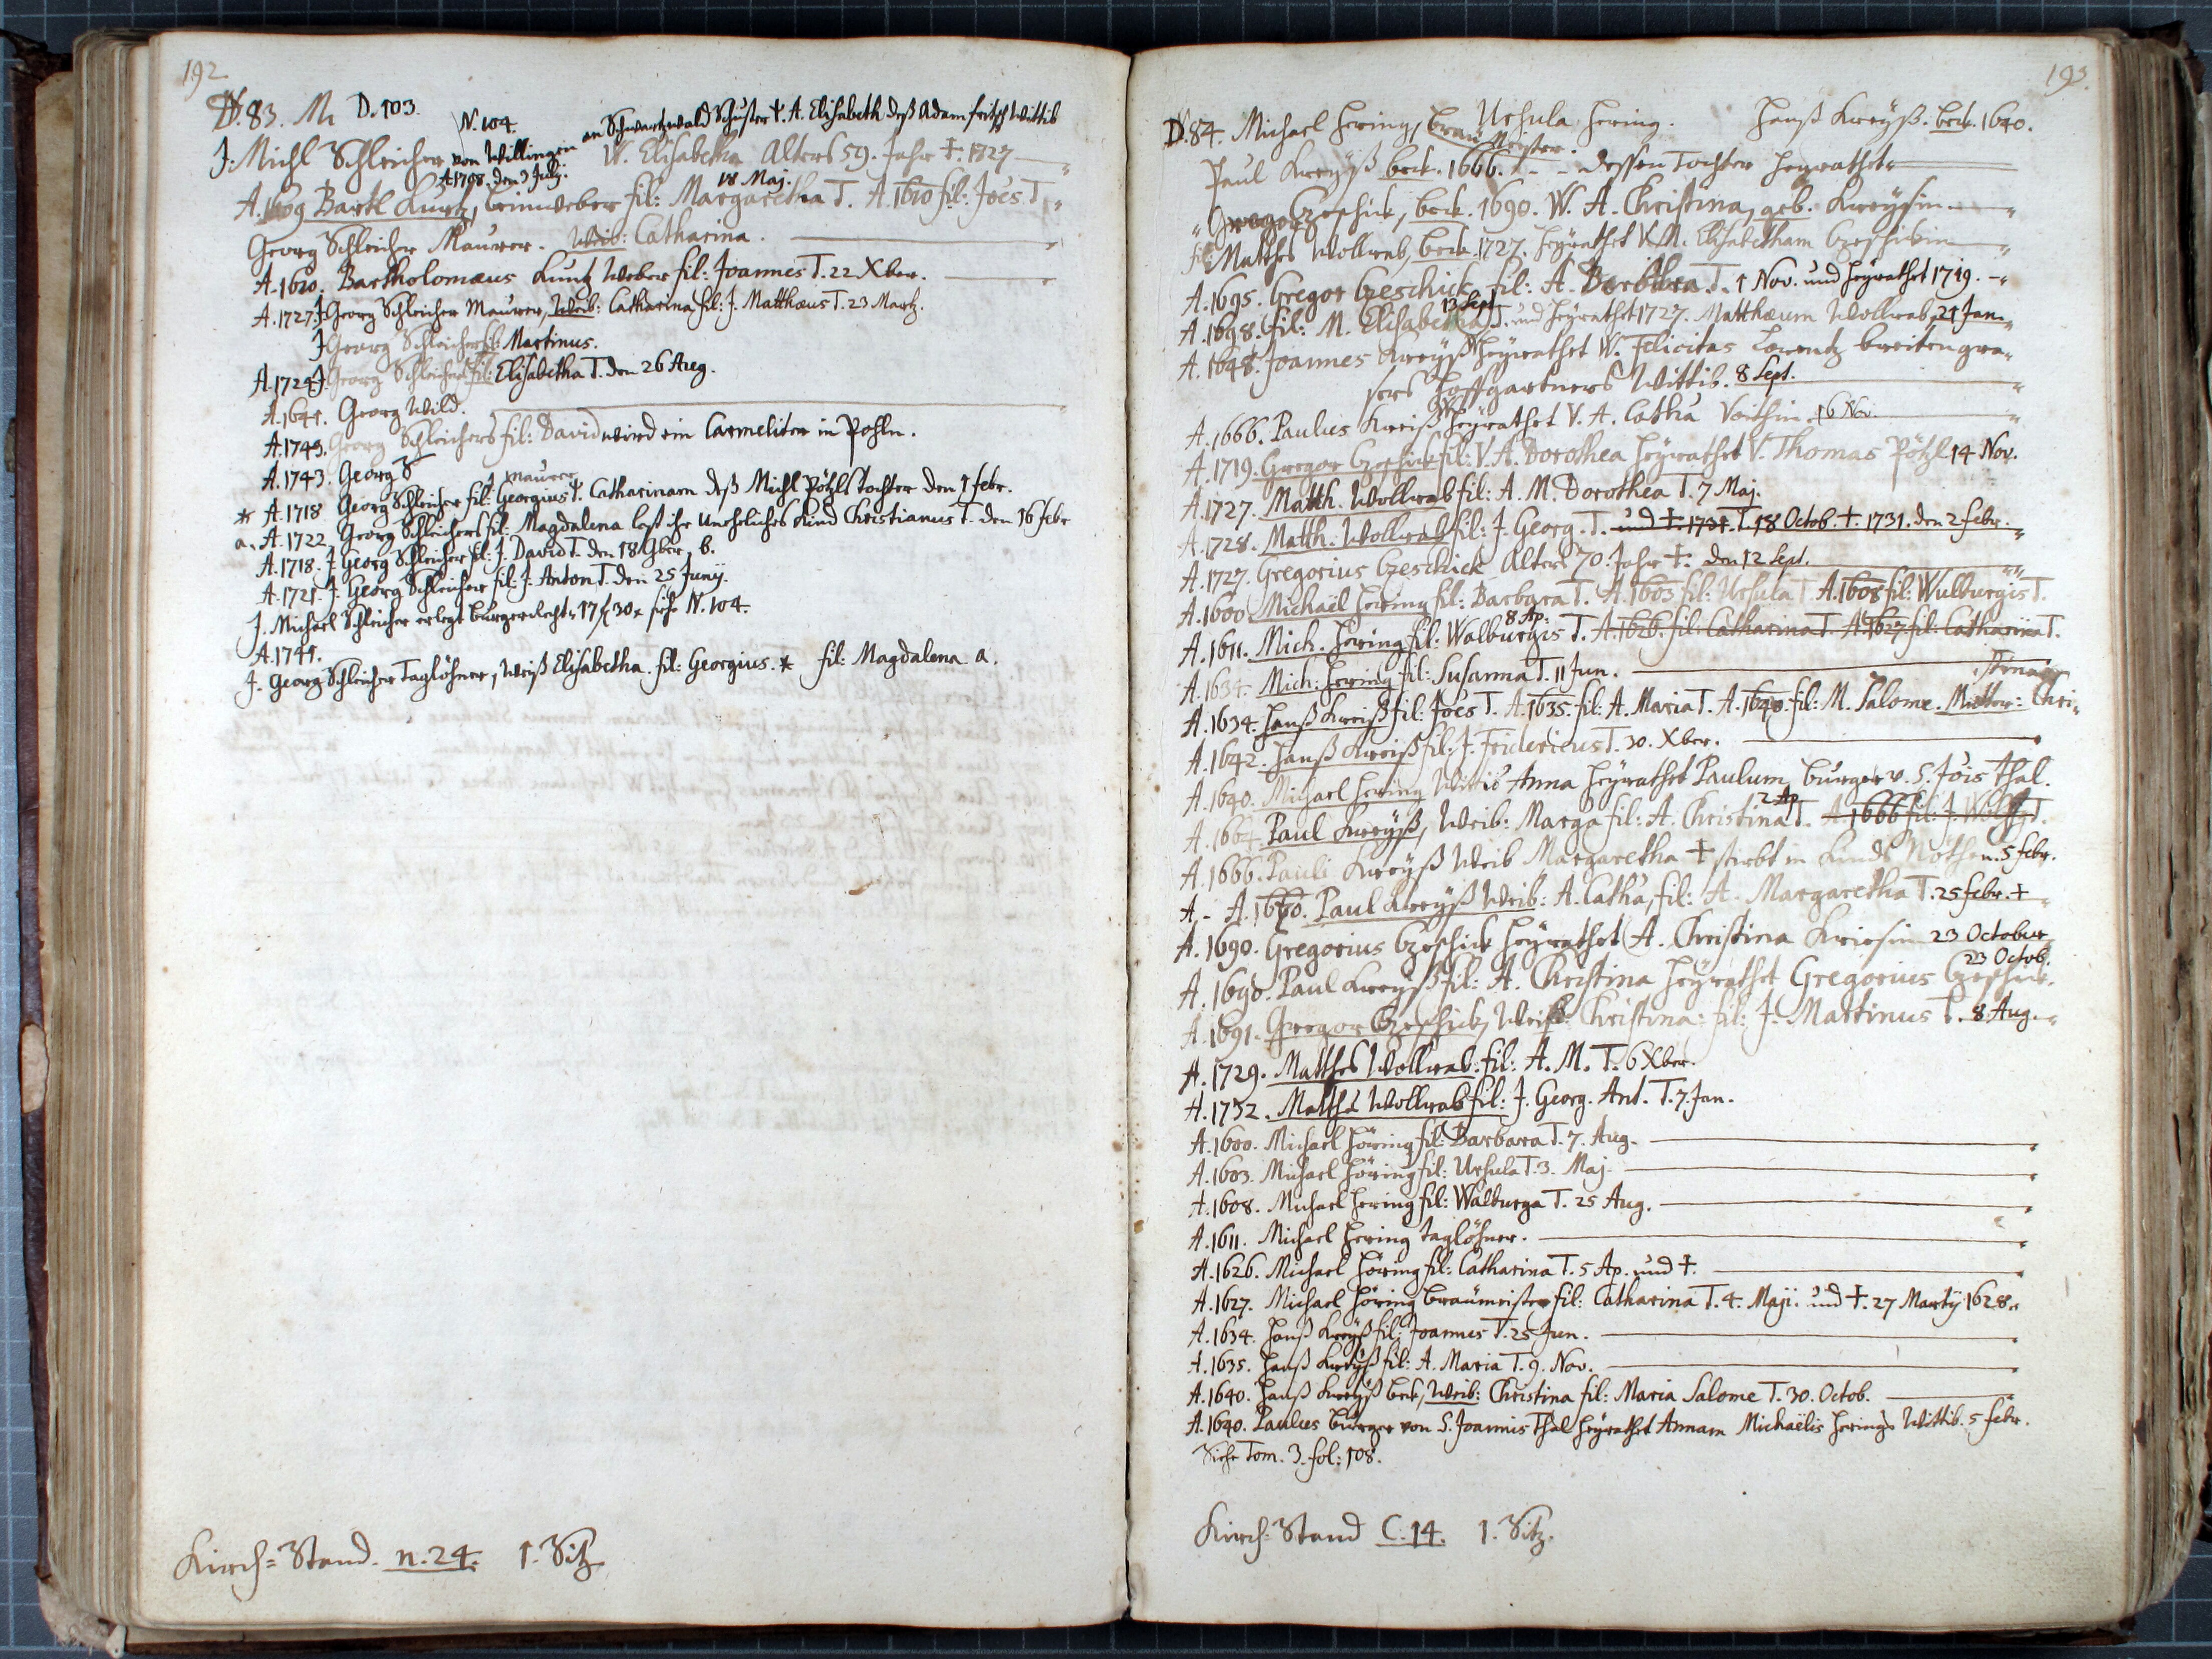 192
D. 83. M D. 103.
N. 104.
J. Michl Schleicher von Willingen an Schwartzwald Schuster †. A. Elisabeth deß Adam fritsch Wittib
A. 1708. den 3 July. W. Elisabetha Alters 59. Jahr †. 1727
18 Maj.
A. 1609 Bartl Kuntz, leinweber fil: Margaretha T. A. 1610 fil: Joës T.
Georg Schleicher Maurer. Weib: Catharina.
A. 1610. Bartholomæus Kuntz Weber fil: Joannes T. 22 Xber.
A. 1727. J Georg Schleicher Maurer, Weib: Catharina fil: J. Matthæus T. 23 Martz.
J Georg Schleicher fil: Martinus.
A. 1724 J. Georg Schleichers fil: Elisabetha T. den 26 Aug.
A. 1641. Georg Wild.
A. 1749. Georg Schleichers fil: David wird ein Carmeliter in Pohln.
A. 1743. Georg S
Maurer
* A. 1718 Georg Schleicher fil: Georgius †. Catharinam deß Michl Pötzls tochter den 1 febr.
a. A. 1722. Georg Schleichers fil: Magdalena lest ihr Unehrliches Kind Christianus T. den 16 febr
A. 1718. J. Georg Schleicher fil: J. David T. den 18 9ber. b.
A. 1721. J. Georg Schleicher fil: J. Anton T. den 25 Junij.
J. Michael Schleicher erlegt burgerrecht 17 f 30 x siehe N. 104.
A. 1741.
J. Georg Schleicher Taglöhner, Weib Elisabetha. fil: Georgius. * fil: Magdalena a.
Kirch=Stand. n. 24. 1. Sitz
193.
D. 84. Michael Hering, Braü Meister. Ursula Hering. Hanß Kreyß. beck. 1640.
Paul Kreyß beck. 1666. - - dessen Tochter heyrathet
Gregor Geschick, beck. 1690. W. A. Christina, geb. Kreysin.
fil: Matthes Wollrab, beck. 1727. heyrathet V. M. Elisabetham Geschickin
A. 1695. Gregor Geschick fil: A. Dorothea T. 1 Nov. und heyrathet 1719.
13 Sept
A. 1698. fil: M. Elisabetha T. und heyrathet 1727. Matthæum Wollrab. 21 Jan.
A. 1648. Joannes Kreyß heyrathet W. Felicitas Lorentz breitengra-
sers Hoffgartners Wittib. 8 Sept.
A. 1666. Paulus Kreiß heyrathet V. A. Cathã Voithin. 16 Nov.
A. 1719. Gregor Geschick fil: V. A. Dorothea heyrathet V. Thomas Pötzl 14 Nov.
A. 1727. Matth. Wollrab fil: A. M. Dorothea T. 7 Maj.
A. 1728. Matth. Wollrab fil: J. Georg. T. und †. 1731. T. 18 Octob. †. 1731. den 2 febr.
A. 1727. Gregorius Geschick Alters 70. Jahr †. den 12 Sept.
A. 1600 Michaël Hering fil: Barbara T. A. 1603 fil: Ursula T A. 1608 fil: Wulburgis T.
8 Ap:
A. 1611. Mich. Hering fil: Walburgis T. A. 1626. fil: Catharina T. A. 1627 fil: Catharina T.
A. 1634. Mich: Hering fil: Susanna T. 11 Jun.
stina
A. 1634. Hanß Kreiß fil: Joës T. A. 1635. fil: A. Maria T. A. 1640. fil: M. Salome. Mutter: Chri-
A. 1642. Hanß Kreiß fil: J. Fridericus T. 30. Xber.
A. 1640. Michael Hering Wittib Anna heyrathet Paulum, Burger v. S. Jois Thal.
2 Ap
A. 1664. Paul Kreyß, Weib: Margã fil: A. Christina T. A 1666 fil: J. Wolffg T.
A. 1666. Pauli Kreyß Weib Margaretha † stirbt in Kinds Nöthen. 5 febr.
A. - A. 1670. Paul Kreyß Weib: A. Cathã, fil: A. Margaretha T. 25 febr. †
A. 1690. Gregorius Geschick heyrathet A. Christina Kriesin 23 October
23 Octob.
A. 1690. Paul Kreyß fil: A. Christina heyrathet Gregorius Geschick.
A. 1691. Gregor Geschick, Weib: Christina: fil: J. Martinus T. 8 Aug.
A. 1729. Matthes Wollrab: fil: A. M. T. 6 Xber.
A. 1732. Matths Wollrab fil: J. Georg. Ant. T. 7. Jan.
A. 1600. Michael Höring fil: Barbara T. 7. Aug.
A. 1603. Michael Höring fil: Ursula T. 3. Maj.
A. 1608. Michael Hering fil: Walburga T. 25 Aug.
A. 1611. Michael Hering Taglöhner.
A. 1626. Michael Höring fil: Catharina T. 5 Ap. und †.
A. 1627. Michael Höring Braümeister fil: Catharina T. 4. Maji. und †. 27 Martij 1628.
A. 1634. Hanß Kreyß fil: Joannes T. 25 Jun.
A. 1635. Hanß Kreyß fil: A. Maria T. 9. Nov.
A. 1640. Hanß Kreyß beck, Weib: Christina fil: Maria Salome T. 30. Octob.
A. 1640. Paulus Burger von S. Joannis Thal heyrathet Annam Michaëlis Herings Wittib. 5 febr.
Siehe Tom. 3. fol: 108.
Kirch=Stand C. 14. 1. Sitz.